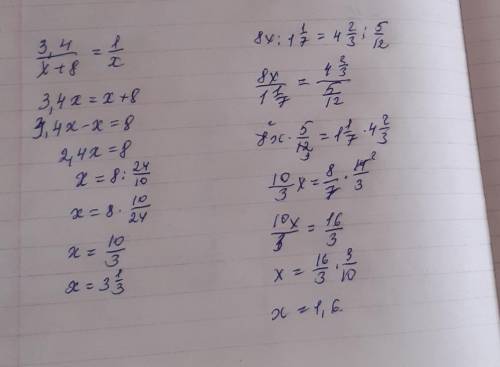 3,4/(x+8) = 1/x
3,4x = x+8
3,4x-x = 8
2,4x = 8
x = 8 : 24/10
x = 8 · 10/24
x = 10/3
x = 3 1/3
8x : 1 1/7 = 4 2/3 : 5/12
8x/(1 1/7) = (4 2/3)/(5/12)
8x · 5/12 = 1 1/7 · 4 2/3
10/3 x = 8/7 · 14/3
10x/3 = 16/3
x = 16/3 · 3/10
x = 1,6.